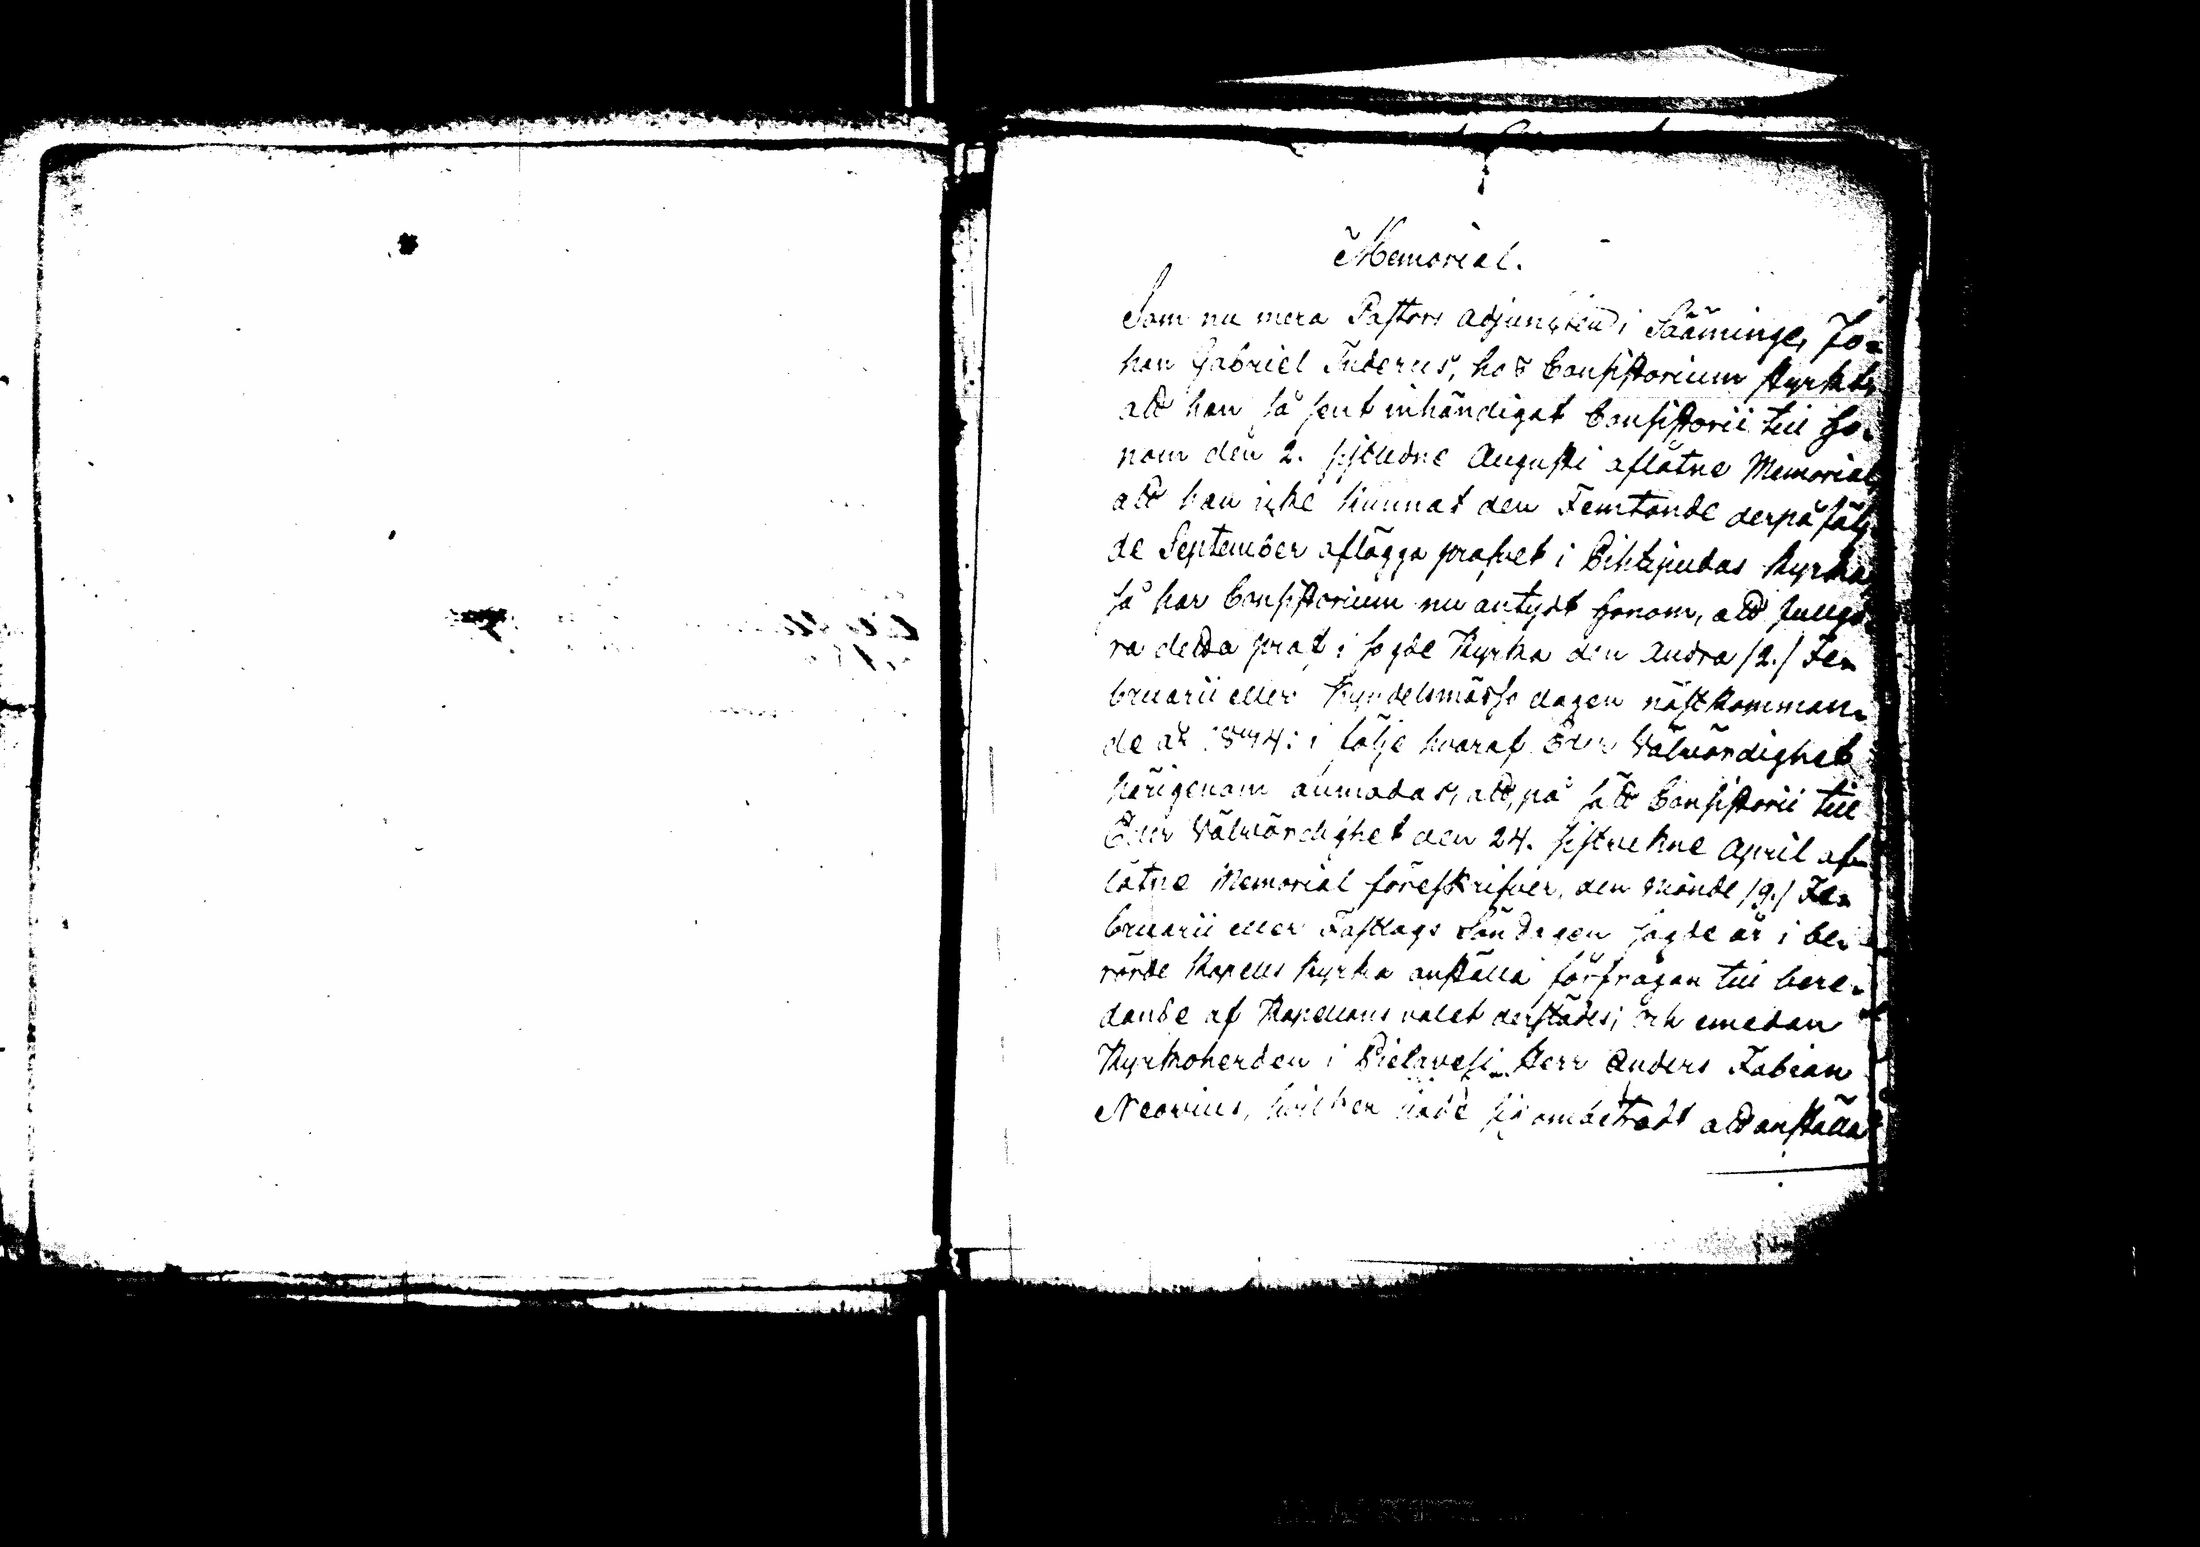 Memorial.
Som nu mera Pastors Adjuncten i Sääminge, Jo-
han Gabriel Tuderus, hos Consistorium styrkt,
att han så sent inhändigat Consistorii till Ho-
nom den 2. sistledne Augusti aflåtne Memorial,
att han icke kunnat den Femtonde derpåföljn
de September aflägga profvet i Pihtipudas Kyrka,
så har Consistorium nu antydt Honom, att fullgö-
ra detta prof i sagde Kyrka den Andra /2./ Fe-
bruarii eller Kyndelsmässo dagen nästkomman-
de år 1844: i följe hvaraf Eder Välvördighet
härigenom anmodas, att, på sätt Consistorii till
Eder Välvördighet den 24. sistvekne April af-
låtne Memorial föreskrifver, den Nionde /9./ Fe-
bruarii eller Fastlags Söndagen sagde år i be-
rörde Kapells Kyrka anställa förfrågan till bere-
dande af Kapellans valet derstädes; och emedan
Kyrkoherden i Pielavesi Herr Anders Fabian
Neovius, hvilken både sig ombetrodt att anställa